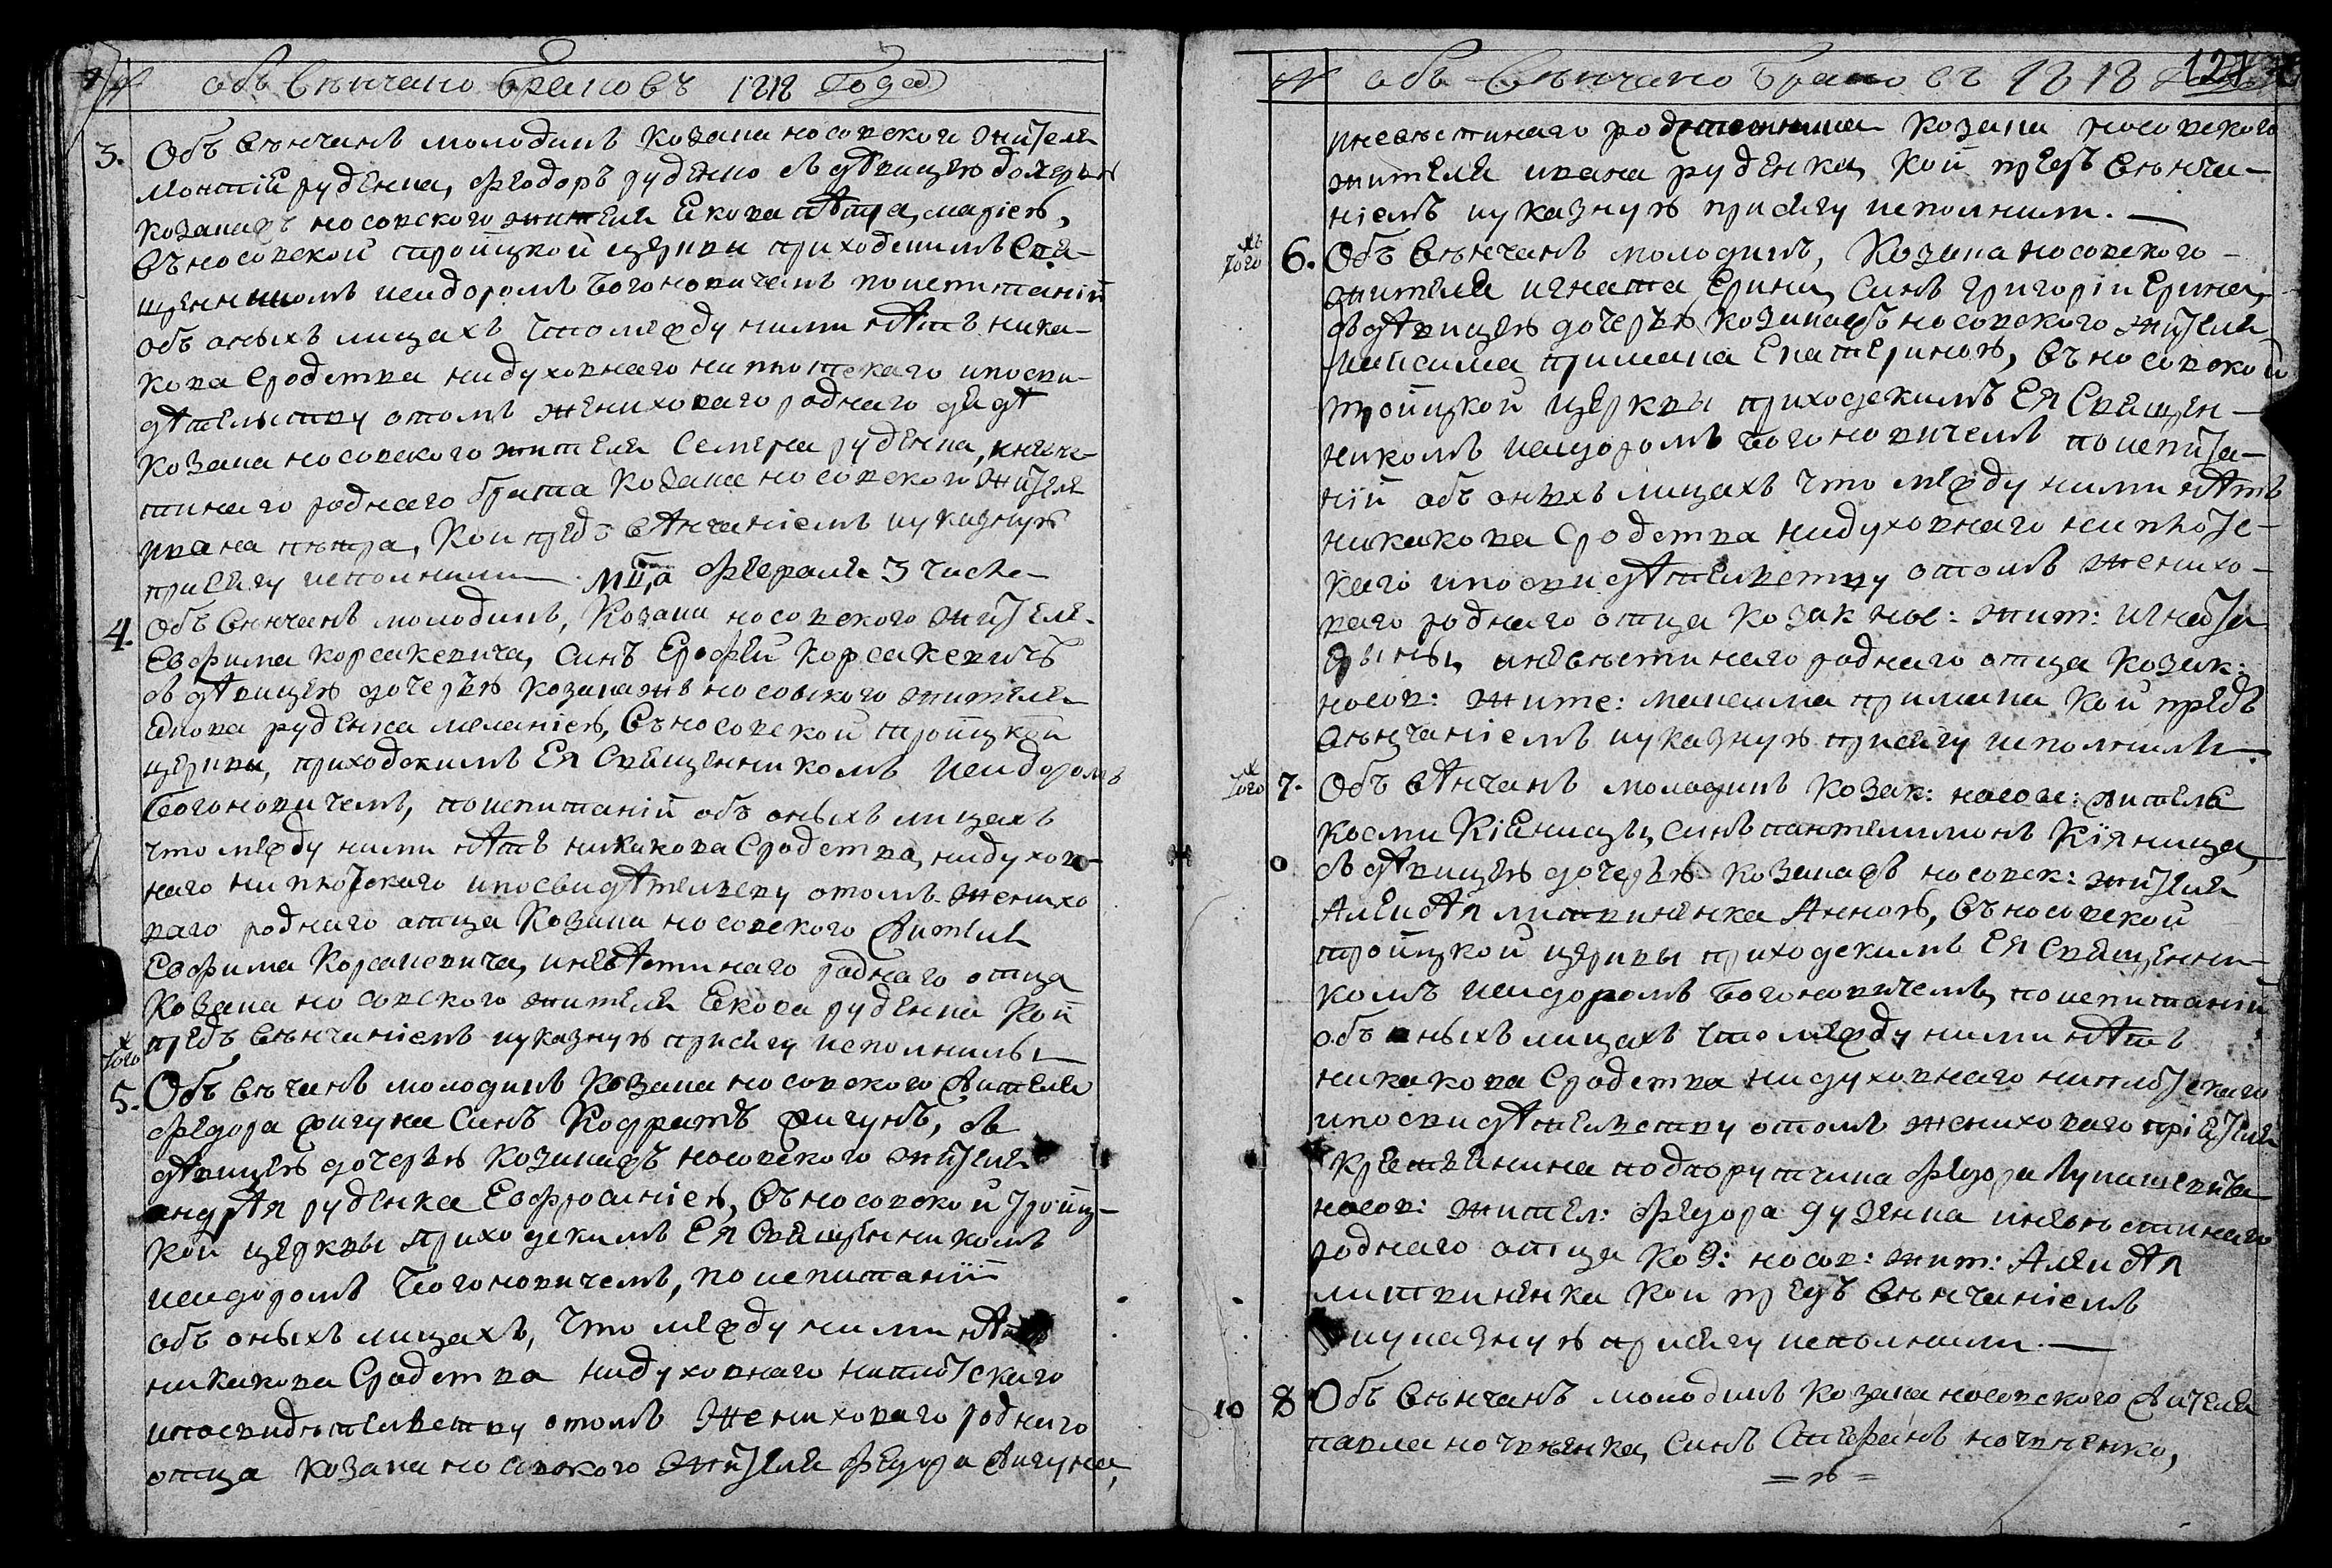 № объ Венчано Браковъ 1818 Года
3. Объ Венчанъ молодикъ Козака носовского жителя
руденка, Феодоръ руденко съ девицею дочерью
козака носовского жителя Екова Мариею,
Въ носовской тройцкой церкви приходскимъ Свя-
щенникомъ исидоромъ Богоновичемъ по испитаній
объ оныхъ лицахъ что между ними нетъ ника-
кова Сродства нидуховнаго ниплотскаго ипосви-
детельству отомъ жениховаго роднаго
козака носовского жителя Семена руденка, иневе-
стинаго роднаго брата Козака носовского жителя
ивана, Кои предъ венчаніемъ иуказную
присягу исполнили. Мца Февраля 3 числа
4. Объ Венчанъ молодикъ, Козака носовского жителя
Евфима корсакевича, Синъ Ерофей Корсакевичъ
съ девицею дочерью козака жъ носовского жителя
Екова руденка меланіею, Въ носовской тройцкой
церкви, приходскимъ Ея Священникомъ исидоромъ
Богоновичемъ, по испитаній объ оныхъ лицахъ
что между ними нетъ никакова Сродства, нидухов-
наго ниплотскаго ипосвидетельству отомъ женихо
ваго роднаго отца Козака носовского жителя
Евфима Корсакевича, иневестинаго роднаго отца
Козака носовского жителя Екова руденка Кой
предъ венчаніемъ иуказную присягу исполнилы
того
5. Объ Венчанъ молодикъ Козака носовского жителя
Федора жигуна Синъ Кодратъ жигунъ, съ
девицею дочерью козака жъ носовского жителя
андрея руденка Евфросиніею, Въ носовской тройц-
кой церквы приходскимъ Ея Священникомъ
исидоромъ Богоновичемъ, по испитаній
объ оныхъ лицахъ, что между ними нетъ
никакова Сродства нидуховнаго ниплотскаго
ипосвидетельству отомъ жениховаго роднаго
отца козака носовского жителя Федора жигуна,
№ объ Венчано Браковъ 1818 121
иневестинаго козака носовского
жителя ивана руденка, Кой предъ Венча-
ніемъ иуказную присягу исполнили.
того 6. Объ Венчанъ молодикъ, Козака носовского
жителя игната Ерини, Синъ Григорій Ерина,
съ девицею дочерью козака жъ носовского жителя
максима примака Екатериною, Въ носовской
тройцкой церквы приходскимъ Ея Священ-
никомъ исидоромъ Богоновичемъ по испита-
ній объ оныхъ лицахъ что между ними нетъ
никакова Сродства нидуховнаго ниплотс-
каго ипосвидетельству отомъ женихо-
ваго роднаго отца козак нос: жит: игната
Ерыны, иневестинаго роднаго отца Козак:
носов: жите: максима примака Кой предъ
венчаніемъ иуказную присягу исполнили.
того 7. Объ венчанъ молодикъ Козак: носов: жителя
Косми Кіяници, Синъ пантелимонъ Кіяница,
съ девицею дочерью козака жъ носовск: жителя
Алексея литвиненка Анною, Въ носовской
тройцкой церквы приходскимъ Ея Священни-
комъ исидоромъ Богоновичемъ, по испитаній
объ оныхъ лицахъ что между ними нетъ
никакова Сродства нидуховнаго ниплотскаго
ипосвидетельству отомъ жениховаго пріятеля
Крестянина подпоручика Федора Лукашевича
носов: жител: Федора иневестинаго
роднаго отца Коз: носов: жит: Алексея
литвиненка Кои предъ Венчаніемъ
иуказную присягу исполнили.
10 8 Объ Венчанъ молодикъ козака носовского жителя
павла Синъ Стефанъ